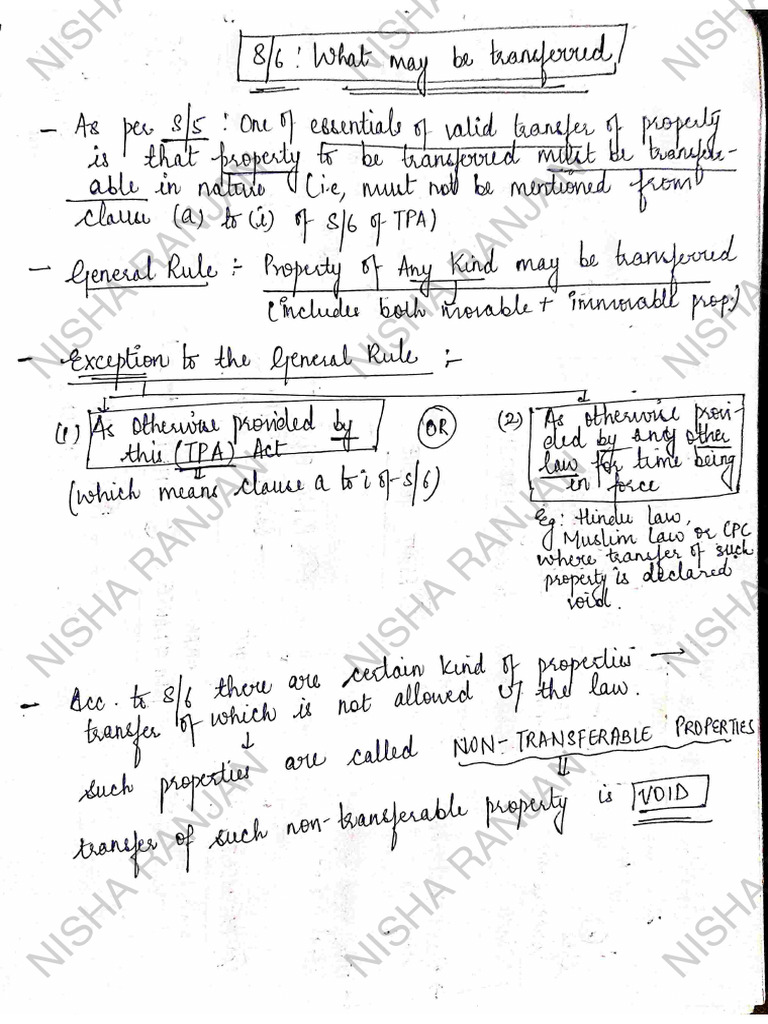 S/6: What may be transferred
- As per S/5: One of essentials of valid transfer of property
is that property to be transferred must be transfer-
able in nature (i.e, must not be mentioned from
clause (a) to (i) of S/6 of TPA)
- General Rule :- Property of Any Kind may be transferred
(includes both movable + immovable prop:)
- Exception to the General Rule :-
(1) As otherwise provided by
this (TPA) Act
(which means clause a to i of S/6)
OR
(2) As otherwise provi-
ded by any other
law for time being
in force
Eg: Hindu law,
Muslim law or CPC
where transfer of such
property is declared
void.
- Acc. to S/6 there are certain kind of properties →
transfer of which is not allowed by the law.
such properties are called NON-TRANSFERABLE PROPERTIES
transfer of such non-transferable property is VOID
NISHA RANJAN
NISHA RANJAN
NISHA RANJAN
NISHA RANJAN
NISHA RANJAN
NISHA RANJAN
NISHA RANJAN
NISHA RANJAN